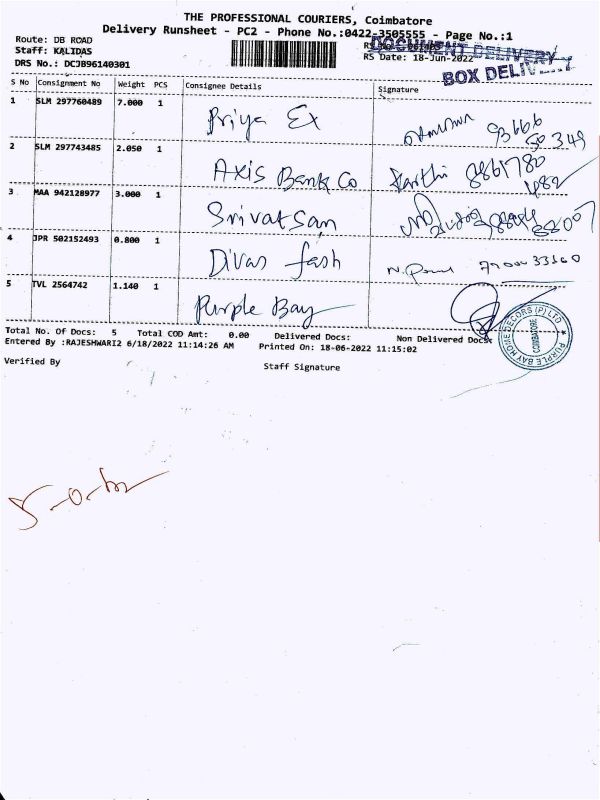 THE PROFESSIONAL COURIERS, Coimbatore
Delivery Runsheet - PC2 - Phone No.:0422-3505555 - Page No.:1
Route: DB ROAD
Staff: KALIDAS
DRS No.: DCJB96140301
DOCUMENT DELIVERY
RS Date: 18-Jun-2022
BOX DELIVERY
S No Consignment No Weight PCS Consignee Details Signature
1 SLM 297760489 7.000 1 Priya Ex
2 SLM 297743485 2.050 1 Axis Bank Co
3 MAA 942128977 3.000 1 Srivatsan
4 JPR 502152493 0.800 1 Divas fash
5 TVL 2564742 1.140 1 Purple Bay
PURPLE BAY HOME DECORS (P) LTD
COIMBATORE
Total No. Of Docs: 5 Total COD Amt: 0.00 Delivered Docs: Non Delivered Docs:
Entered By :RAJESHWARI2 6/18/2022 11:14:26 AM Printed On: 18-06-2022 11:15:02
Verified By Staff Signature